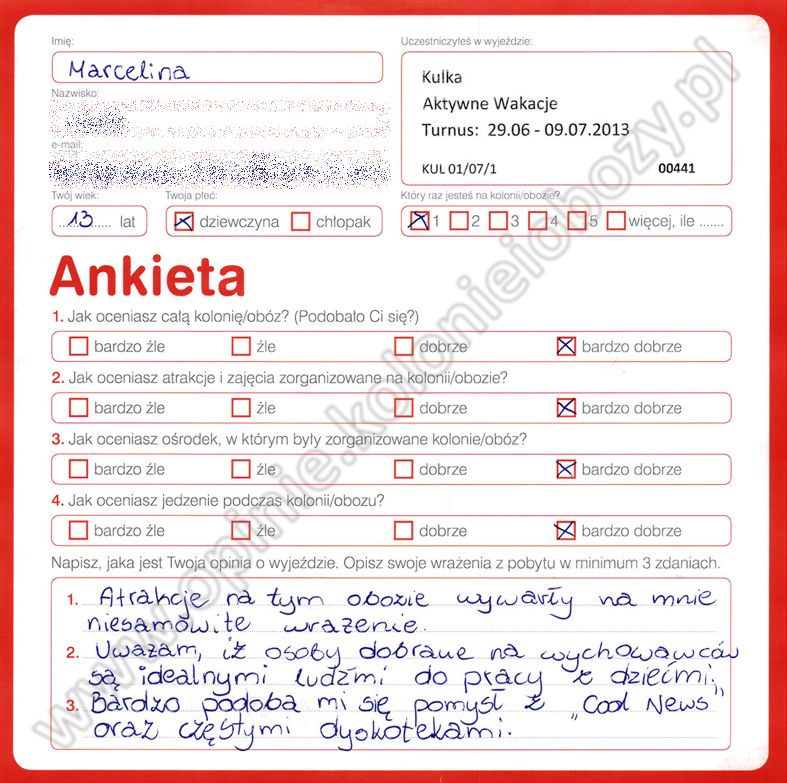 Imię:
Marcelina
Nazwisko:
e-mail:
Twój wiek:
13 lat
Twoja płeć:
dziewczyna chłopak
Uczestniczyłeś w wyjeździe:
Kulka
Aktywne Wakacje
Turnus: 29.06 - 09.07.2013
KUL 01/07/1 00441
Który raz jesteś na kolonii/obozie?
1 2 3 4 5 więcej, ile .......
Ankieta
1. Jak oceniasz całą kolonię/obóz? (Podobało Ci się?)
bardzo źle źle dobrze bardzo dobrze
2. Jak oceniasz atrakcje i zajęcia zorganizowane na kolonii/obozie?
bardzo źle źle dobrze bardzo dobrze
3. Jak oceniasz ośrodek, w którym były zorganizowane kolonie/obóz?
bardzo źle źle dobrze bardzo dobrze
4. Jak oceniasz jedzenie podczas kolonii/obozu?
bardzo źle źle dobrze bardzo dobrze
Napisz, jaka jest Twoja opinia o wyjeździe. Opisz swoje wrażenia z pobytu w minimum 3 zdaniach.
1. Atrakcje na tym obozie wywarły na mnie
niesamowite wrażenie.
2. Uważam, iż osoby dobrane na wychowawców
są idealnymi ludźmi do pracy z dziećmi.
3. Bardzo podoba mi się pomysł z „Cool News"
oraz częstymi dyskotekami.
www.opinie.kolonieiobozy.pl